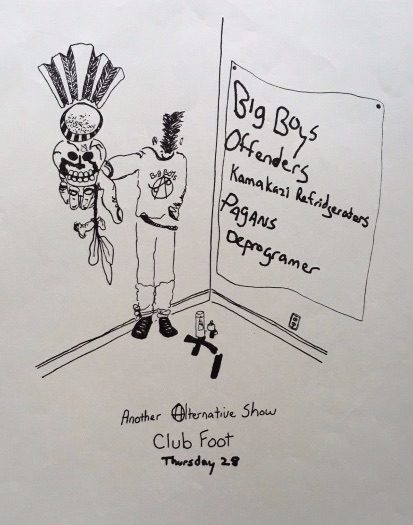 Big Boys
Big Boys
Offenders
Kamakazi Refridgerators
Pagans
Deprogramer
Another Alternative Show
Club Foot
Thursday 28